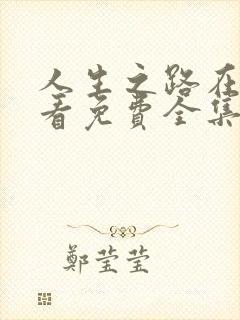 人生之路在
看免費全集
鄭莹莹